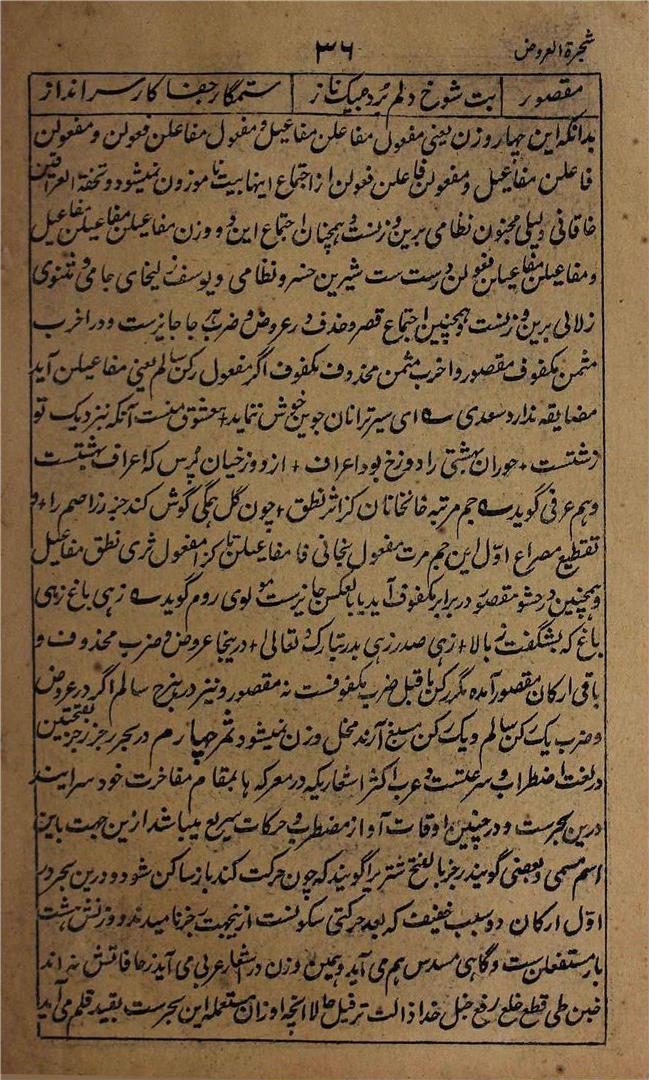 شجرة العروض
۳۶
مقصور | بت شوخ دلم برد بیک ناز | ستمگار جفا کار سر انداز
بدانکه این چهار وزن یعنی مفعول مفاعلن مفاعیل و مفعول مفاعلن فعولن و مفعولن
فاعلن مفاعیل و مفعولن فاعلن فعولن از اجتماع اینها بیت ناموزون نمیشود و تحفة العراقین
خاقانی و لیلی مجنون نظامی برین وزنست و همچنان اجتماع این دو وزن مفاعیلن مفاعیلن مفاعیل
و مفاعیلن مفاعیلن فعولن درست ست شیرین خسرو نظامی و یوسف زلیخای جامی و مثنوی
زلالی برین وزنست و همچنین اجتماع قصر و حذف در عروض و ضرب هر جا جایزست و در اخرب
مثمن مکفوف مقصور و اخرب مثمن محذوف مکفوف اگر مفعول رکن سالم یعنی مفاعیلن آید
مضایقه ندارد سعدی ؎ ای سیر ترا نان جوین خوش ننماید + معشوق منست آنکه بنزدیک تو
زشتست + حوران بهشتی را دوزخ بود اعراف + از دوزخیان پرس که اعراف بهشتست
و هم عرفی گوید ؎ جم مرتبه خانخانان کز اثر نطق + چون گل همگی گوش کند جذر اصم را + و
تقطیع مصراع اول این جم مرت مفعول بخانی خا مفاعیلن نا کز ا مفعول ثری نطق مفاعیل
و همچنین در حشو مقصور در برابر مکفوف آید یا بالعکس جایزست مولوی روم گوید ؎ زهی باغ زهی
باغ که بشگفت ز بالا + زهی صدر زهی بدر تبارک و تعالی + درینجا عروض و ضرب محذوف و
باقی ارکان مقصور آمده مگر رکن ماقبل ضرب مکفوفست نه مقصور و نیز در هزج سالم اگر در عروض
و ضرب یک رکن سالم و یک رکن مسبغ آرند مخل وزن نمیشود ثمر چهارم در بحر رجز رجز بفتحتین
در لغت اضطراب و سرعتست و عرب اکثر اشعاریکه در معرکه ها بمقام مفاخرت خود سرایند
درین بحرست و در چنین اوقات آواز مضطرب و حرکات سریع میباشد ازین جهت باین
اسم مسمی و بعضی گویند رجز بالفتح شتریرا گویند که چون حرکت کند باز ساکن شود و درین بحر در
اول ارکان دو سبب خفیف که بعد حرکتی سکونست ازینجهت رجز نامیدند و وزنش هشت
بار مستفعلن ست و گاهی مسدس هم می آید و همین وزن در اشعار عربی می آید زحافاتش نه اند
خبن طی قطع خلع رفع خبل حذا ذالت ترفیل حالا انچه اوزان مستعمله این بحرست بقید قلم می آید